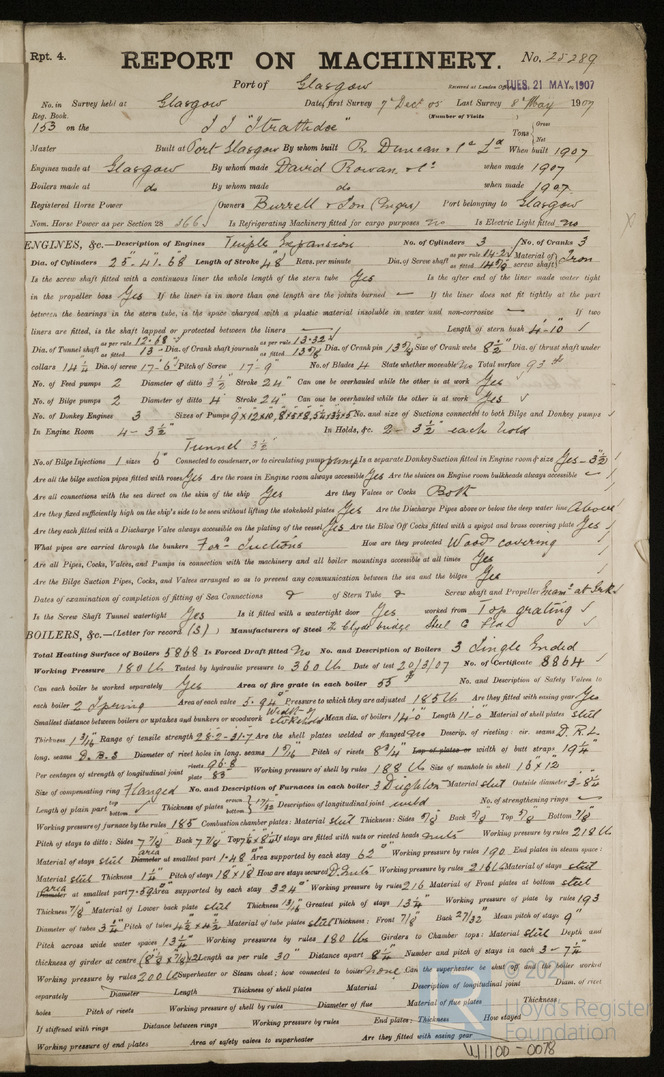 Rpt. 4.
REPORT ON MACHINERY.
No. 25289
Port of Glasgow
Received at London Office TUES. 21 MAY. 1907
No. in Survey held at Glasgow Date, first Survey 7th Dec 05 Last Survey 8th May 1907
Reg. Book. (Number of Visits
153 on the S.S "Strathdee" Tons Gross Net
Master Built at Port Glasgow By whom built R. Duncan & Co Ld When built 1907
Engines made at Glasgow By whom made David Rowan & Co when made 1907
Boilers made at do By whom made do when made 1907
Registered Horse Power Owners Burrell & Son Port belonging to Glasgow
Nom. Horse Power as per Section 28 366 Is Refrigerating Machinery fitted for cargo purposes no Is Electric Light fitted no
ENGINES, &c.—Description of Engines Triple Expansion No. of Cylinders 3 No. of Cranks 3
Dia. of Cylinders 25"-41"-68 Length of Stroke 48" Revs. per minute Dia. of Screw shaft as per rule 14.2 as fitted Material of screw shaft Iron
Is the screw shaft fitted with a continuous liner the whole length of the stern tube Yes Is the after end of the liner made water tight
in the propeller boss Yes If the liner is in more than one length are the joints burned — If the liner does not fit tightly at the part
between the bearings in the stern tube, is the space charged with a plastic material insoluble in water and non-corrosive — If two
liners are fitted, is the shaft lapped or protected between the liners — Length of stern bush 4-10
Dia. of Tunnel shaft as per rule 12.68 as fitted 13 Dia. of Crank shaft journals as per rule 13.32 as fitted 13 5/8 Dia. of Crank pin 13 5/8 Size of Crank webs 8½ Dia. of thrust shaft under
collars 14¼ Dia. of screw 17-6 Pitch of Screw 17-9 No. of Blades 4 State whether moveable no Total surface 93
No. of Feed pumps 2 Diameter of ditto 3½" Stroke 24" Can one be overhauled while the other is at work Yes
No. of Bilge pumps 2 Diameter of ditto 4 Stroke 24" Can one be overhauled while the other is at work Yes
No. of Donkey Engines 3 Sizes of Pumps No. and size of Suctions connected to both Bilge and Donkey pumps
In Engine Room 4-3½" In Holds, &c. 2-3½" each hold
Tunnel 3½"
No. of Bilge Injections 1 sizes 6" Connected to condenser, or to circulating pump pump Is a separate Donkey Suction fitted in Engine room & size Yes-3½
Are all the bilge suction pipes fitted with roses Yes Are the roses in Engine room always accessible Yes Are the sluices on Engine room bulkheads always accessible —
Are all connections with the sea direct on the skin of the ship Yes Are they Valves or Cocks Both
Are they fixed sufficiently high on the ship's side to be seen without lifting the stokehold plates Yes Are the Discharge Pipes above or below the deep water line Above
Are they each fitted with a Discharge Valve always accessible on the plating of the vessel Yes Are the Blow Off Cocks fitted with a spigot and brass covering plate Yes
What pipes are carried through the bunkers Ford Suctions How are they protected Wood covering
Are all Pipes, Cocks, Valves, and Pumps in connection with the machinery and all boiler mountings accessible at all times Yes
Are the Bilge Suction Pipes, Cocks, and Valves arranged so as to prevent any communication between the sea and the bilges Yes
Dates of examination of completion of fitting of Sea Connections of Stern Tube Screw shaft and Propeller
Is the Screw Shaft Tunnel watertight Yes Is it fitted with a watertight door Yes worked from Top grating
BOILERS, &c.—(Letter for record (S)) Manufacturers of Steel Clydebridge Steel Co
Total Heating Surface of Boilers 5868 Is Forced Draft fitted no No. and Description of Boilers 3 Single Ended
Working Pressure 180 lb Tested by hydraulic pressure to 360 lb Date of test 20/3/07 No. of Certificate 8864
Can each boiler be worked separately Yes Area of fire grate in each boiler 55 No. and Description of Safety Valves to
each boiler 2 Spring Area of each valve 5.94 Pressure to which they are adjusted 185 lb Are they fitted with easing gear Yes
Smallest distance between boilers or uptakes and bunkers or woodwork Mean dia. of boilers 14-0 Length 11-0 Material of shell plates steel
Thickness 1 3/16 Range of tensile strength 28.2-31.7 Are the shell plates welded or flanged no Descrip. of riveting: cir. seams D.R.L.
long. seams D.B.S Diameter of rivet holes in long. seams 1 5/16 Pitch of rivets 8¾ Lap of plates or width of butt straps 19¼
Per centages of strength of longitudinal joint rivets 96.8 plate 83 Working pressure of shell by rules 188 lb Size of manhole in shell 16 x 12
Size of compensating ring Flanged No. and Description of Furnaces in each boiler 3 Deighton Material steel Outside diameter 3-8¼
Length of plain part top bottom Thickness of plates crown bottom 17/32 Description of longitudinal joint weld No. of strengthening rings —
Working pressure of furnace by the rules 185 Combustion chamber plates: Material steel Thickness: Sides 5/8 Back 5/8 Top 5/8 Bottom 7/8
Pitch of stays to ditto: Sides Back Top If stays are fitted with nuts or riveted heads nuts Working pressure by rules 218 lb
Material of stays steel Diameter area at smallest part 1.48 Area supported by each stay 62 Working pressure by rules 190 End plates in steam space:
Material steel Thickness 1¼ Pitch of stays 18 x 18 How are stays secured D. Nuts Working pressure by rules 216 lb Material of stays steel
Diameter area at smallest part 7.59 Area supported by each stay 324 Working pressure by rules 216 Material of Front plates at bottom steel
Thickness 7/8 Material of Lower back plate steel Thickness 13/16 Greatest pitch of stays 13¼ Working pressure of plate by rules 193
Diameter of tubes 3¼ Pitch of tubes 4½ x 4½ Material of tube plates steel Thickness: Front 7/8 Back 27/32 Mean pitch of stays 9"
Pitch across wide water spaces 13¼ Working pressures by rules 180 lb Girders to Chamber tops: Material steel Depth and
thickness of girder at centre Length as per rule 30" Distance apart 8¼ Number and pitch of stays in each 3-7¼
Working pressure by rules 200 lb Superheater or Steam chest; how connected to boiler none Can the superheater be shut off and the boiler worked
separately Diameter Length Thickness of shell plates Material Description of longitudinal joint Diam. of rivet
holes Pitch of rivets Working pressure of shell by rules Diameter of flue Material of flue plates Thickness
If stiffened with rings Distance between rings Working pressure by rules End plates: Thickness How stayed
Working pressure of end plates Area of safety valves to superheater Are they fitted with easing gear
W1100-0078
Lloyd's Register
Foundation